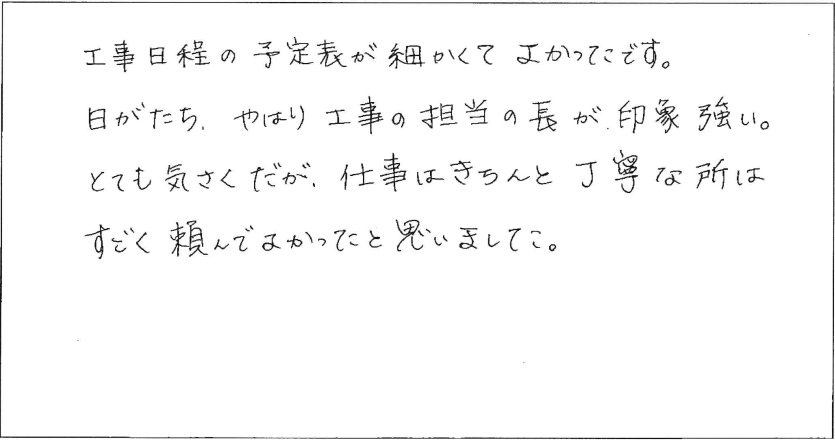 工事日程の予定表が細かくてよかったです。
日がたち、やはり工事の担当の長が、印象強い。
とても気さくだが、仕事はきちんと丁寧な所は
すごく頼んでよかったと思いました。